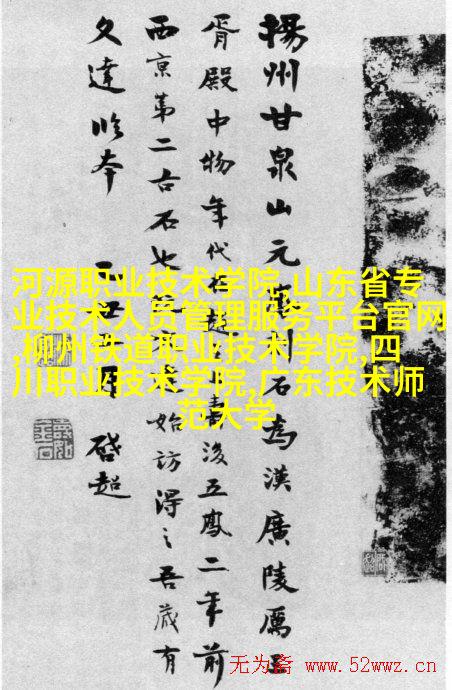 揚州甘泉山元刻石為漢廣陵厲王
胥殿中物年代後五鳳二年前
西京第二古石也始訪得之吾藏有
文達本
月
啓超
河源职业技术学院,山东省专
业技术人员管理服务平台官网
,柳州铁道职业技术学院,四
川职业技术学院,广东技术师
范大学
无为斋 www.52wwz.cn